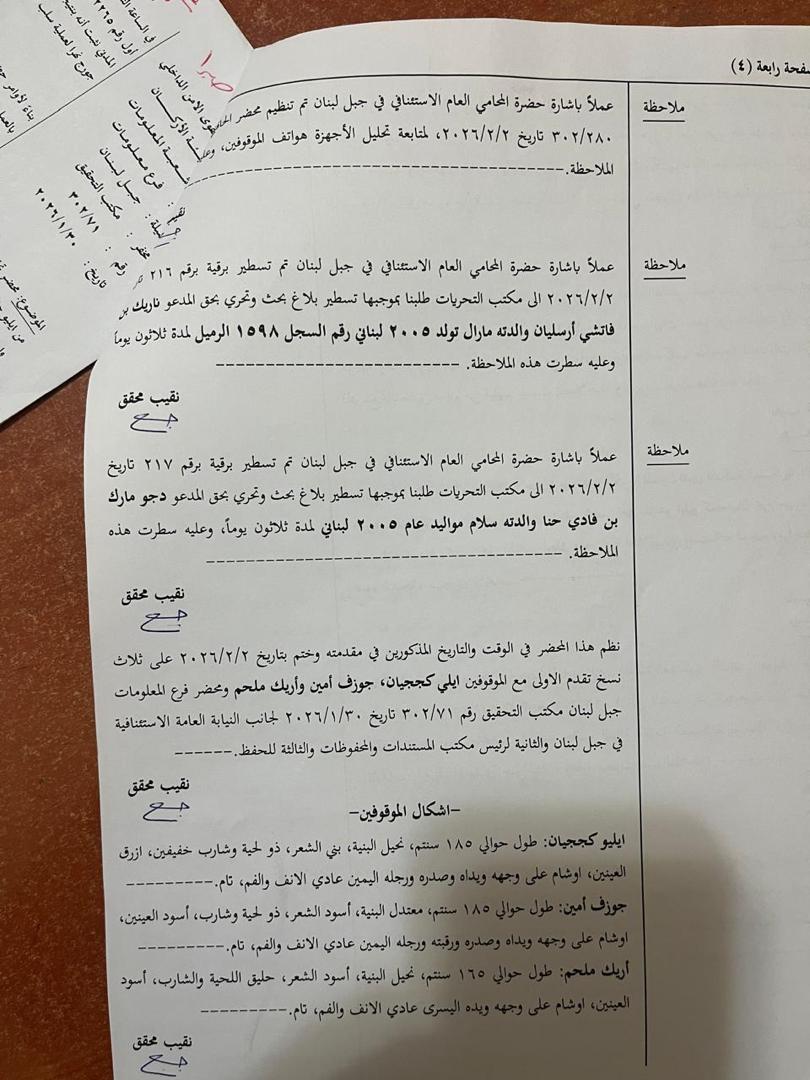 صفحة رابعة (٤)
ملاحظة
عملاً باشارة حضرة المحامي العام الاستئنافي في جبل لبنان تم تنظيم محضر
٣٠٢/٢٨٠ تاريخ ٢٠٢٦/٢/٢، لمتابعة تحليل الأجهزة هواتف الموقوفين،
الملاحظة.
ملاحظة
عملاً باشارة حضرة المحامي العام الاستئنافي في جبل لبنان تم تسطير برقية برقم ٢١٦
٢٠٢٦/٢/٢ الى مكتب التحريات طلبنا بموجبها تسطير بلاغ بحث وتحري بحق المدعو ناريك بن
فاتشي أرسليان والدته مارال تولد ٢٠٠٥ لبناني رقم السجل ١٥٩٨ الرميل لمدة ثلاثون يوماً
وعليه سطرت هذه الملاحظة.
نقيب محقق
ملاحظة
عملاً باشارة حضرة المحامي العام الاستئنافي في جبل لبنان تم تسطير برقية برقم ٢١٧ تاريخ
٢٠٢٦/٢/٢ الى مكتب التحريات طلبنا بموجبها تسطير بلاغ بحث وتحري بحق المدعو دجو مارك
بن فادي حنا والدته سلام مواليد عام ٢٠٠٥ لبناني لمدة ثلاثون يوماً، وعليه سطرت هذه
الملاحظة.
نقيب محقق
نظم هذا المحضر في الوقت والتاريخ المذكورين في مقدمته وختم بتاريخ ٢٠٢٦/٢/٢ على ثلاث
نسخ تقدم الاولى مع الموقوفين ايلي كججيان، جوزف أمين وأريك ملحم ومحضر فرع المعلومات
جبل لبنان مكتب التحقيق رقم ٣٠٢/٧١ تاريخ ٢٠٢٦/١/٣٠ لجانب النيابة العامة الاستئنافية
في جبل لبنان والثانية لرئيس مكتب المستندات والمحفوظات والثالثة للحفظ.
نقيب محقق
-اشكال الموقوفين-
ايليو كججيان: طول حوالي ١٨٥ سنتم، نحيل البنية، بني الشعر، ذو لحية وشارب خفيفين، ازرق
العينين، اوشام على وجهه ويداه وصدره ورجله اليمين عادي الانف والفم، تام.
جوزف أمين: طول حوالي ١٨٥ سنتم، معتدل البنية، أسود الشعر، ذو لحية وشارب، أسود العينين،
اوشام على وجهه ويداه وصدره ورقبته ورجله اليمين عادي الانف والفم، تام.
أريك ملحم: طول حوالي ١٦٥ سنتم، نحيل البنية، أسود الشعر، حليق اللحية والشارب، أسود
العينين، اوشام على وجهه ويده اليسرى عادي الانف والفم، تام.
نقيب محقق
في الساعة
أول رقم
وى الامن الداخلي
ـة الأركـان
شعبـة المعلومـات
فرع معـلـومـات
جبل لبـنـان
مكتب التحقيق
رقم : ٣٠٢/٧١
تاريخ : ٢٠٢٦/١/٣٠
الموضوع: محضر
من ايليو